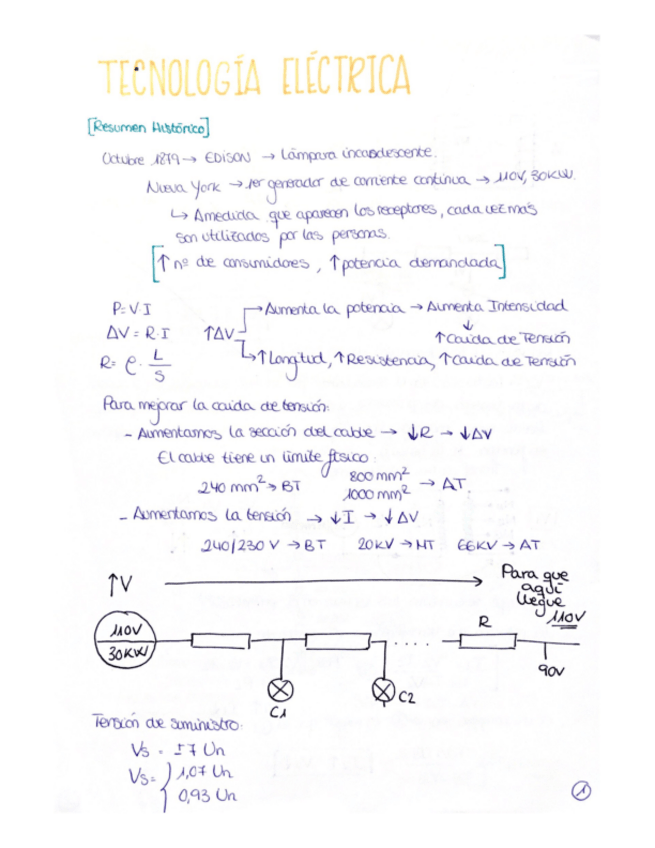 TECNOLOGÍA ELÉCTRICA
[Resumen Histórico]
Octubre 1879 → EDISON → Lámpara incandescente.
Nueva York → 1er generador de corriente continua → 110V, 30KW.
↳ Amedida que aparecen los receptores, cada vez más
son utilizados por las personas.
[↑ nº de consumidores, ↑ potencia demandada]
P = V·I
→ Aumenta la potencia → Aumenta Intensidad
↓
ΔV = R·I
↑ΔV
↑ Caida de Tensión
R = ρ · L/S
↳ ↑ Longitud, ↑ Resistencia, ↑ Caida de Tensión
Para mejorar la caida de tensión:
- Aumentamos la sección del cable → ↓R → ↓ΔV
El cable tiene un límite físico:
240 mm² → BT
800 mm²
1000 mm² → AT.
- Aumentamos la tensión → ↓I → ↓ΔV
240/230 V → BT 20KV → MT 66KV → AT
↑V
Para que
aquí
llegue
110V
110V
30KW
R
90V
C1
C2
Tensión de suministro:
Vs = ±7 Un
Vs = { 1,07 Un
0,93 Un
1